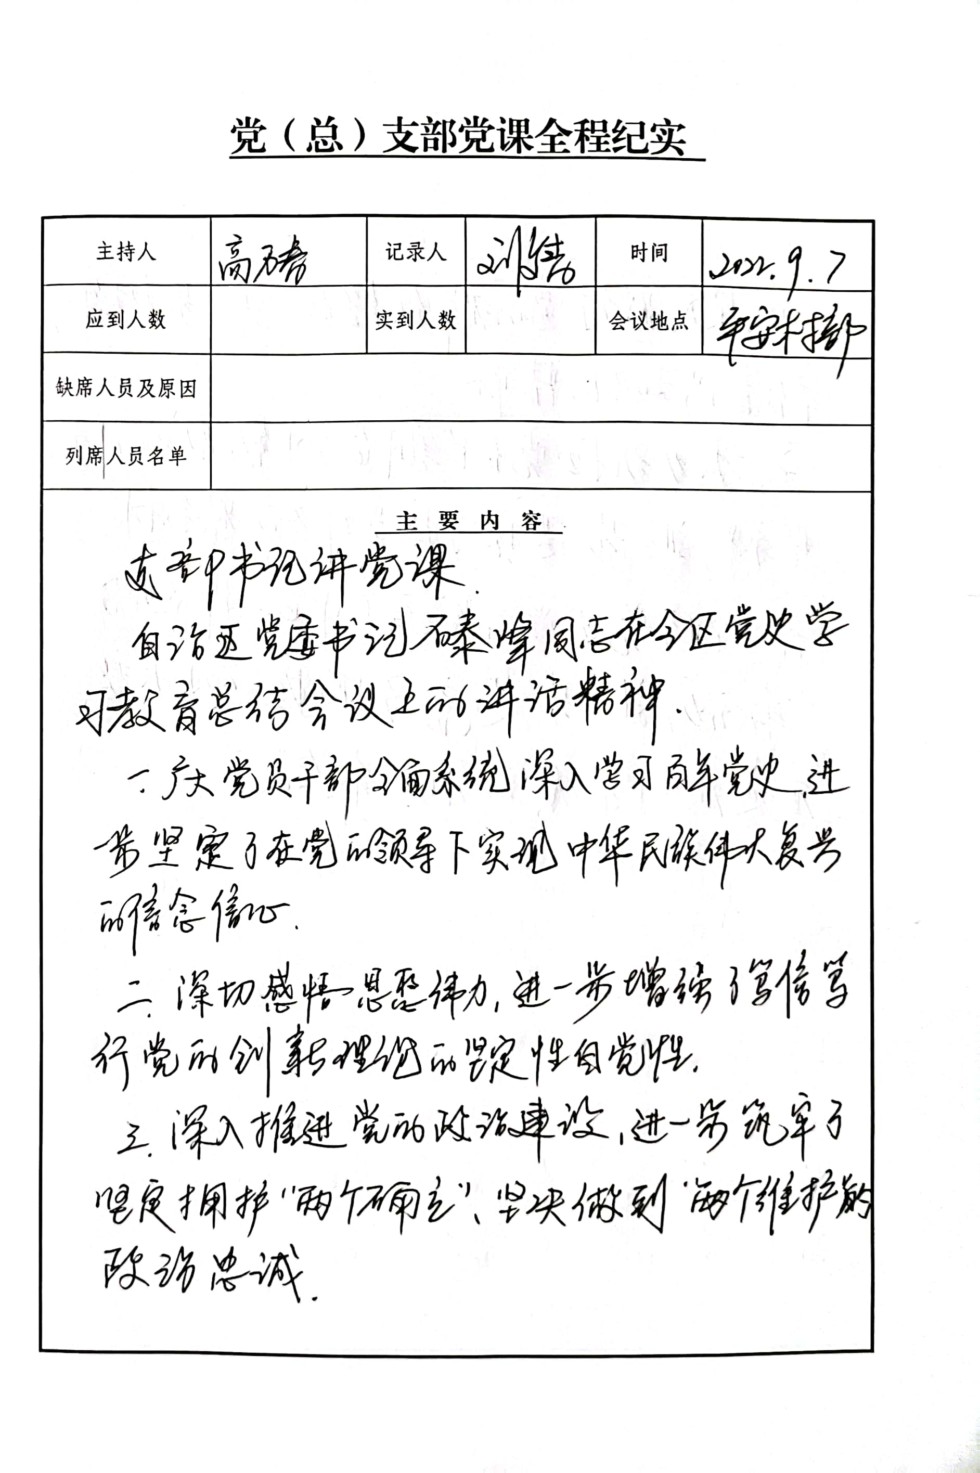 党（总）支部党课全程纪实
主持人 高万春 记录人 刘 时间 2022.9.7
应到人数 实到人数 会议地点 平安村村部
缺席人员及原因
列席人员名单
主要内容
支部书记讲党课.
自治区党委书记石泰峰同志在全区党史学
习教育总结会议上的讲话精神.
一.广大党员干部全面系统深入学习百年党史,进
一步坚定了在党的领导下实现中华民族伟大复兴
的信念信心.
二.深切感悟思想伟力,进一步增强了笃信笃
行党的创新理论的坚定性自觉性.
三.深入推进党的政治建设,进一步筑牢了
坚定拥护“两个确立”、坚决做到“两个维护”的
政治忠诚.